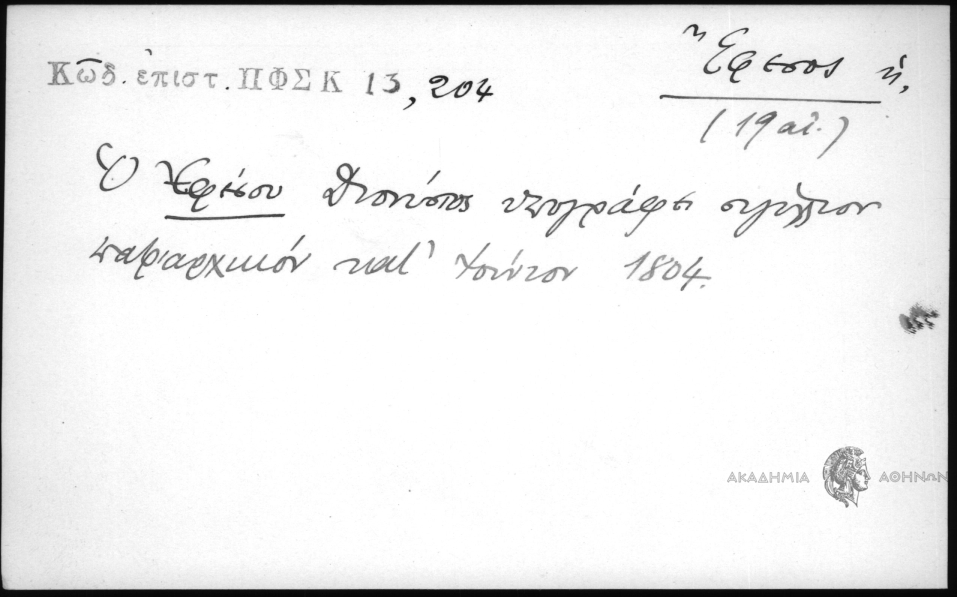 Κῶδ. ἐπιστ. ΠΦΣΚ 13, 204
Ἔφεσος ἡ,
(19 αἰ.)
Ὁ Ἐφέσου Διονύσιος ὑπογράφει σιγίλλιον
πατριαρχικόν κατ' Ἰούνιον 1804.
ΑΚΑΔΗΜΙΑ ΑΘΗΝΩΝ